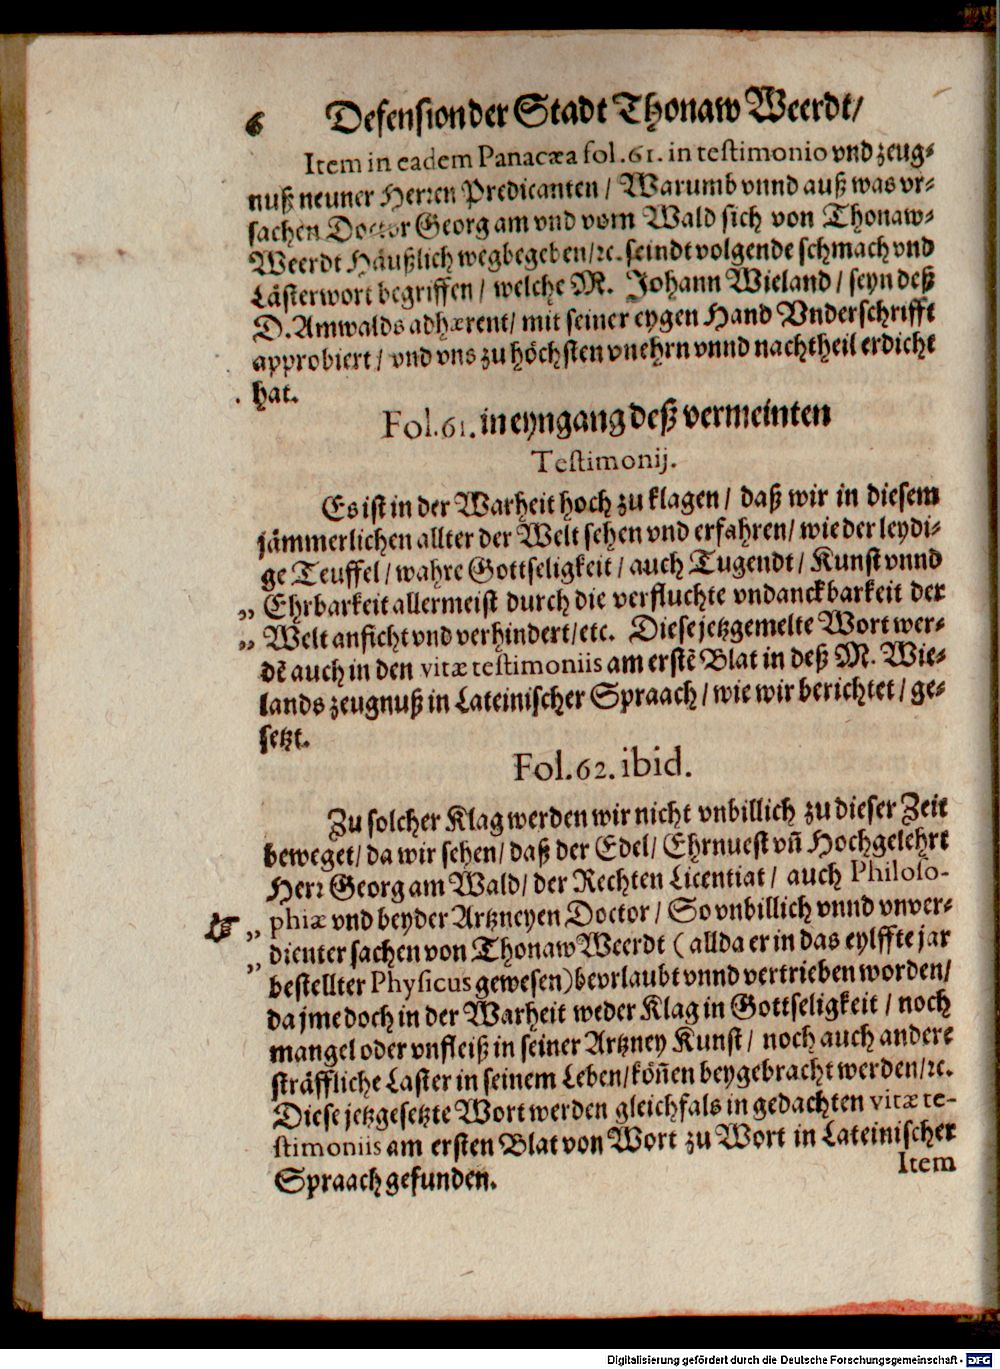 6 Defension der Stadt Thonaw Weerdt/
Item in eadem Panacæa fol. 61. in testimonio vnd zeug-
nuß neuner Herren Predicanten / Warumb vnnd auß was vr-
sachen Doctor Georg am vnd vom Wald sich von Thonaw-
Weerdt Häußlich wegbegeben/ꝛc. seindt volgende schmach vnd
Lästerwort begriffen / welche M. Johann Wieland / seyn deß
D. Amwalds adhærent/ mit seiner eygen Hand Vnderschrifft
approbiert / vnd vns zu höchsten vnehrn vnnd nachtheil erdicht
hat.
Fol. 61. in eyngang deß vermeinten
Testimonij.
Es ist in der Warheit hoch zu klagen / daß wir in diesem
jämmerlichen allter der Welt sehen vnd erfahren/ wie der leydi-
ge Teuffel / wahre Gottseligkeit / auch Tugendt / Kunst vnnd
„ Ehrbarkeit allermeist durch die verfluchte vndanckbarkeit der
„ Welt anficht vnd verhindert/etc. Diese jetzgemelte Wort wer-
dẽ auch in den vitæ testimoniis am erstẽ Blat in deß M. Wie-
lands zeugnuß in Lateinischer Spraach / wie wir berichtet / ge-
setzt.
Fol. 62. ibid.
Zu solcher Klag werden wir nicht vnbillich zu dieser Zeit
beweget/ da wir sehen/ daß der Edel/ Ehrnuest vñ Hochgelehrt
Herr Georg am Wald/ der Rechten Licentiat / auch Philoso-
☞ „ phiæ vnd beyder Artzneyen Doctor / So vnbillich vnnd vnver-
„ dienter sachen von Thonaw Weerdt ( allda er in das eylffte jar
bestellter Physicus gewesen) bevrlaubt vnnd vertrieben worden/
da jme doch in der Warheit weder Klag in Gottseligkeit / noch
mangel oder vnfleiß in seiner Artzney Kunst / noch auch andere
sträffliche Laster in seinem Leben/ köñen beygebracht werden/ꝛc.
Diese jetzgesetzte Wort werden gleichfals in gedachten vitæ te-
stimoniis am ersten Blat von Wort zu Wort in Lateinischer
Spraach gefunden.
Item
Digitalisierung gefördert durch die Deutsche Forschungsgemeinschaft - DFG